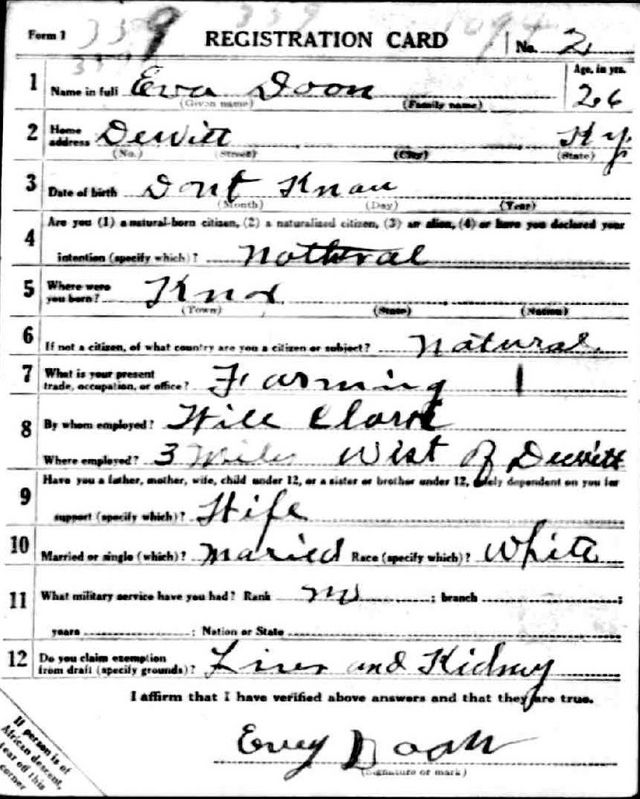 Form 1 339 339 1094 No. 2
REGISTRATION CARD
339
Age, in yrs.
1 Name in full Eva Doon 26
(Given name) (Family name)
2 Home address Dewitt Ky
(No.) (Street) (City) (State)
3 Date of birth Dont Know
(Month) (Day) (Year)
Are you (1) a natural-born citizen, (2) a naturalized citizen, (3) an alien, (4) or have you declared your
4 intention (specify which)? Nothural
5 Where were you born? Knox
(Town) (State) (Nation)
6 If not a citizen, of what country are you a citizen or subject? Natural
7 What is your present trade, occupation, or office? Farming 1
8 By whom employed? Will Clark
Where employed? 3 Miles West of Dewitt
Have you a father, mother, wife, child under 12, or a sister or brother under 12, solely dependent on you for
9 support (specify which)? Wife
10 Married or single (which)? Maried Race (specify which)? White
11 What military service have you had? Rank no ; branch
years ; Nation or State
12 Do you claim exemption from draft (specify grounds)? Liver and Kidney
I affirm that I have verified above answers and that they are true.
Evey Doan
(Signature or mark)
If person is of
African descent,
tear off this
corner